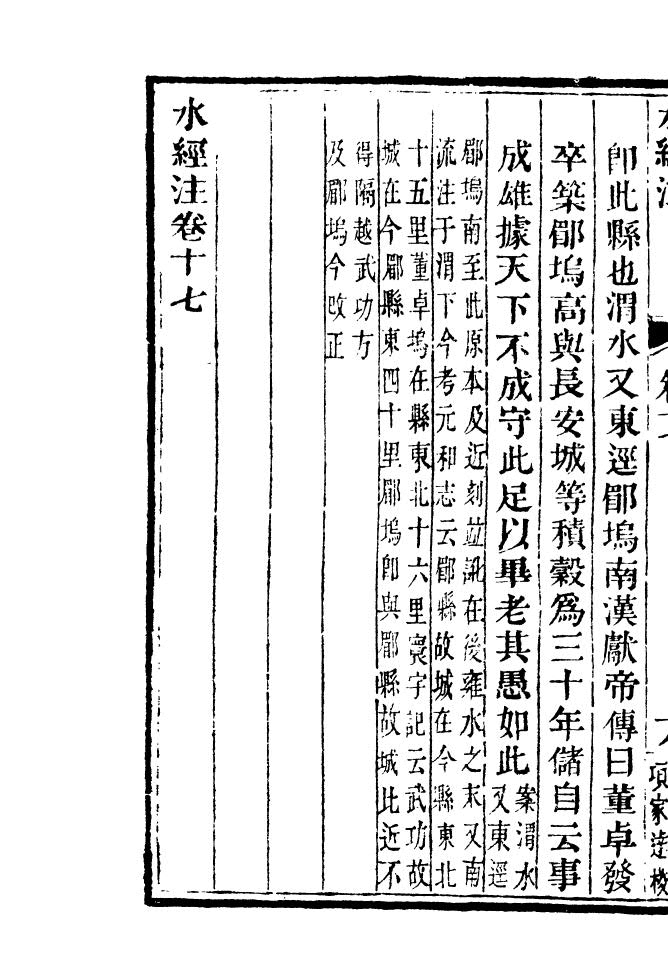 卽此縣也渭水又東逕郿塢南漢獻帝傳曰董卓發
卒築郿塢高與長安城等積穀爲三十年儲自云事
成雄據天下不成守此足以畢老其愚如此案渭水
又東逕
郿塢南至此原本及近刻並訛在後雍水之末又南
流注于渭下今考元和志云郿縣故城在今縣東北
十五里董卓塢在縣東北十六里寰宇記云武功故
城在今郿縣東四十里郿塢卽與郿縣故城比近不
得隔越武功方
及郿塢今改正
水經注卷十七
項家達校